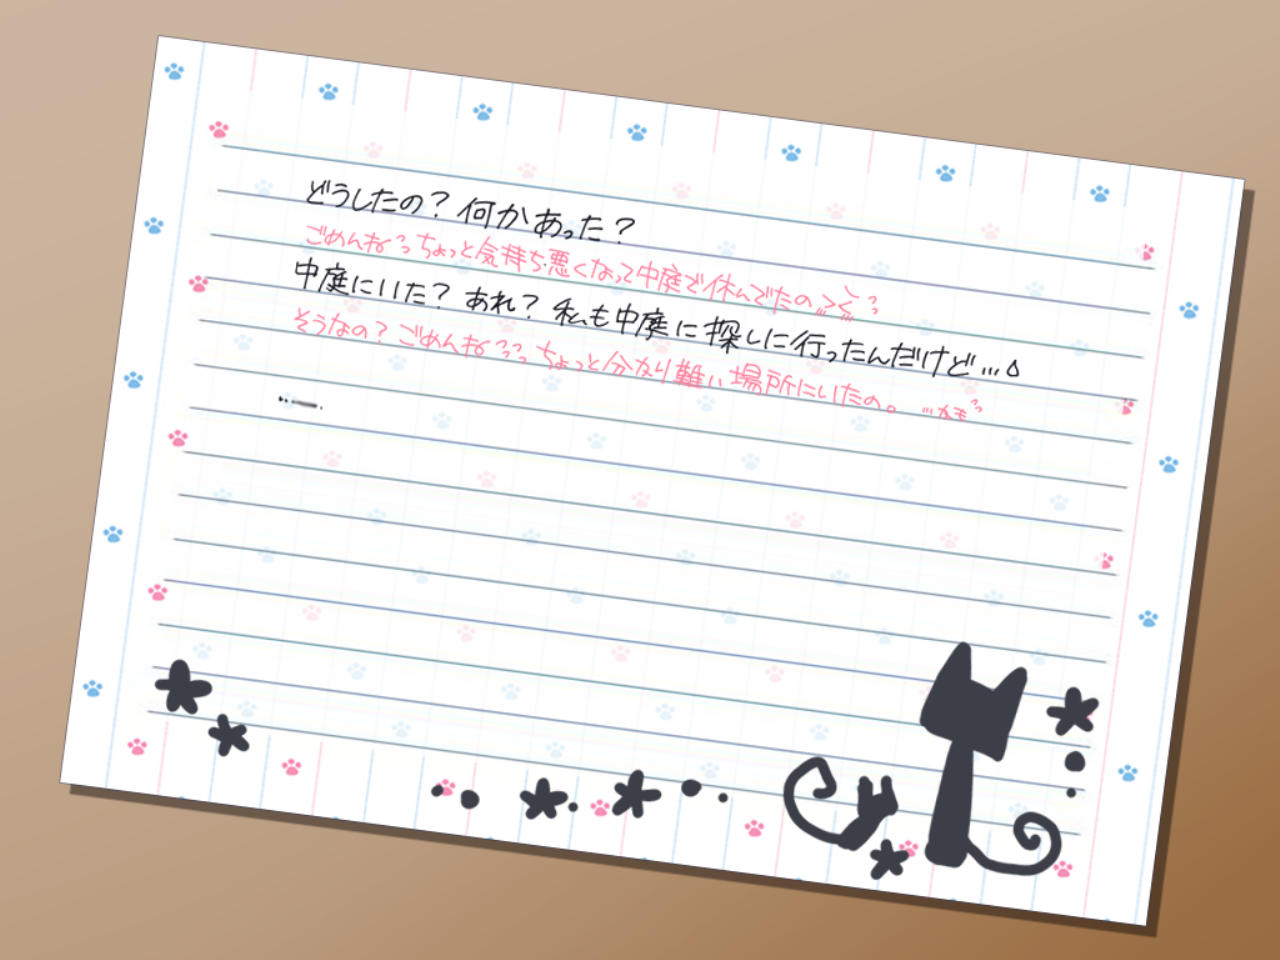 どうしたの？何かあった？
ごめんねっちょっと気持ち悪くなって中庭で休んでたの
中庭にいた？あれ？私も中庭に探しに行ったんだけど…
そうなの？ごめんね ちょっと分かり難い場所にいたの。…かも